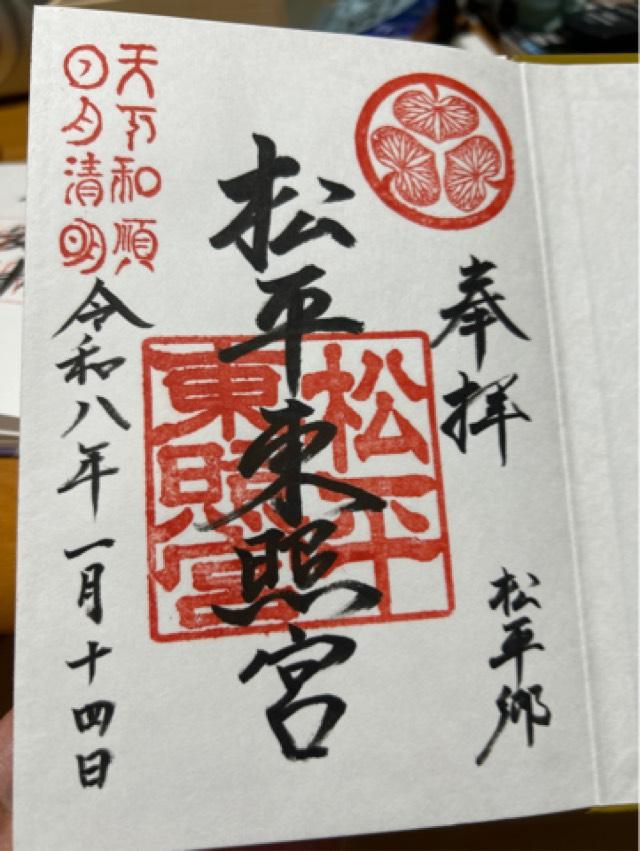 奉拝
松平郷
松平東照宮
松平
東照宮
天下和順
日月清明
令和八年一月十四日